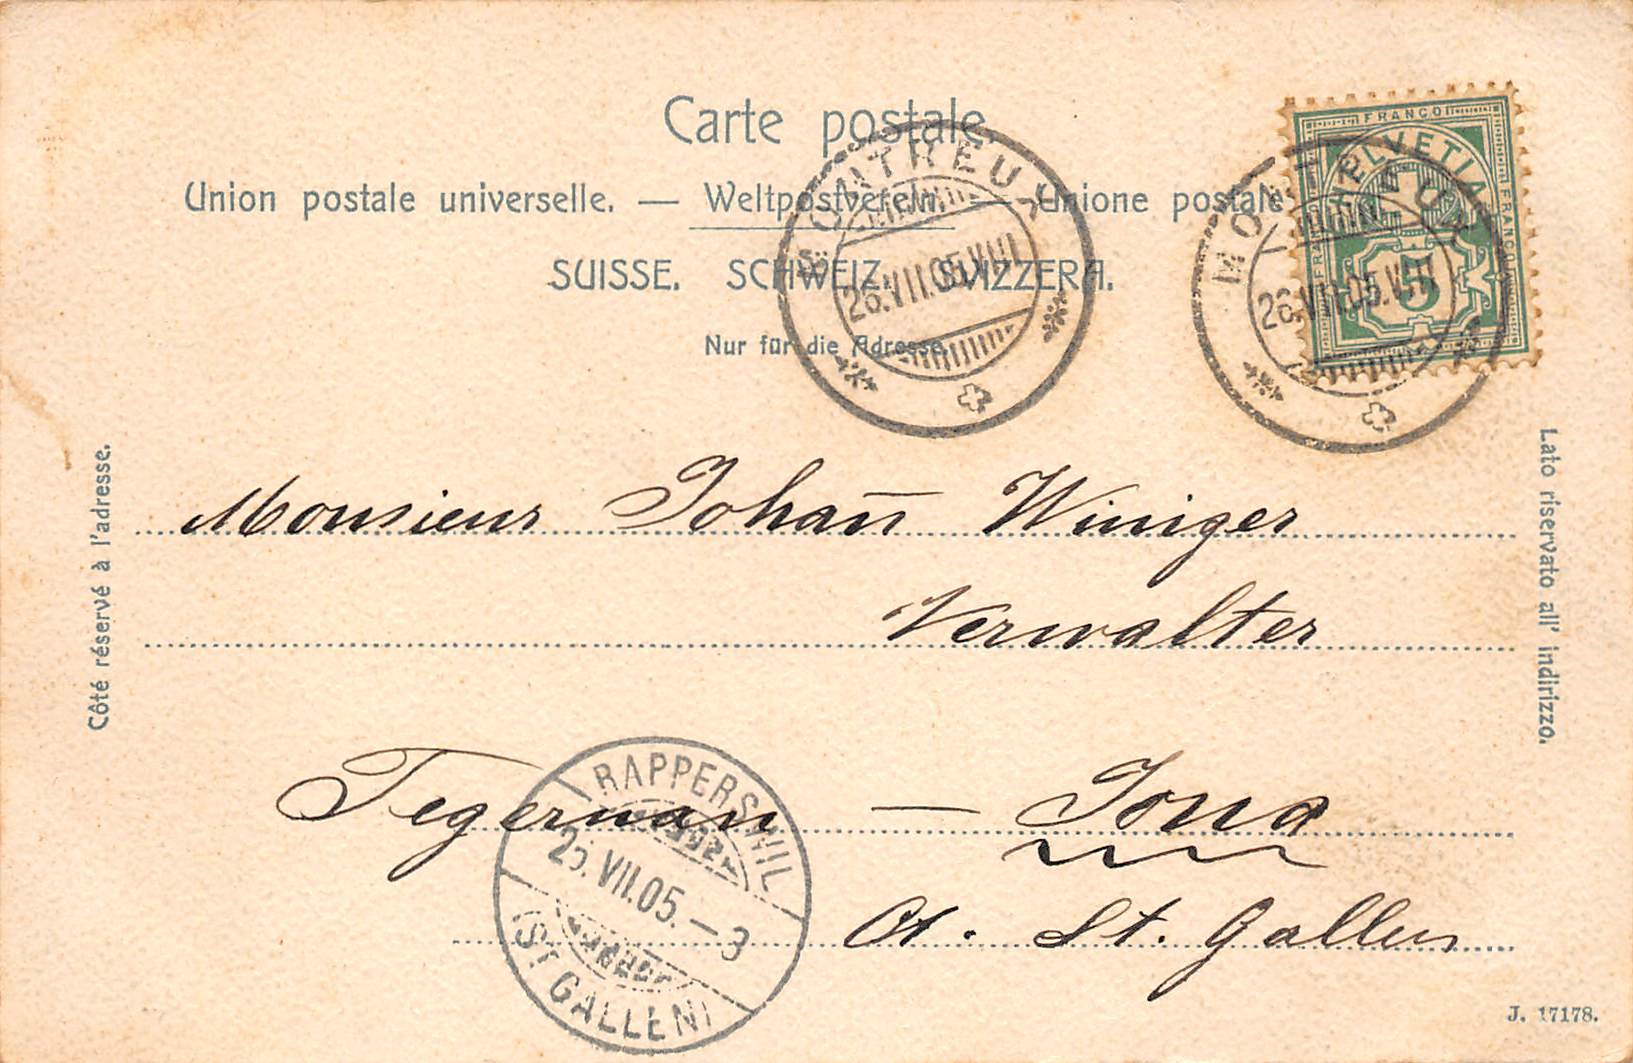 Carte postale
Union postale universelle. — Weltpostverein. — Unione postale
SUISSE. SCHWEIZ. SVIZZERA.
Nur für die Adresse.
MONTREUX
26.VII.05.VIII
MONTREUX
26.VII.05.VIII
FRANCO
HELVETIA
FRANCO
FRANCO
5
Côté réservé à l'adresse.
Lato riservato all' indirizzo.
Monsieur Johan̄ Winiger
Verwalter
Tegernau — Jona
Ct. St. Gallen
RAPPERSWIL
VII.05.–3
(ST GALLEN)
J. 17178.